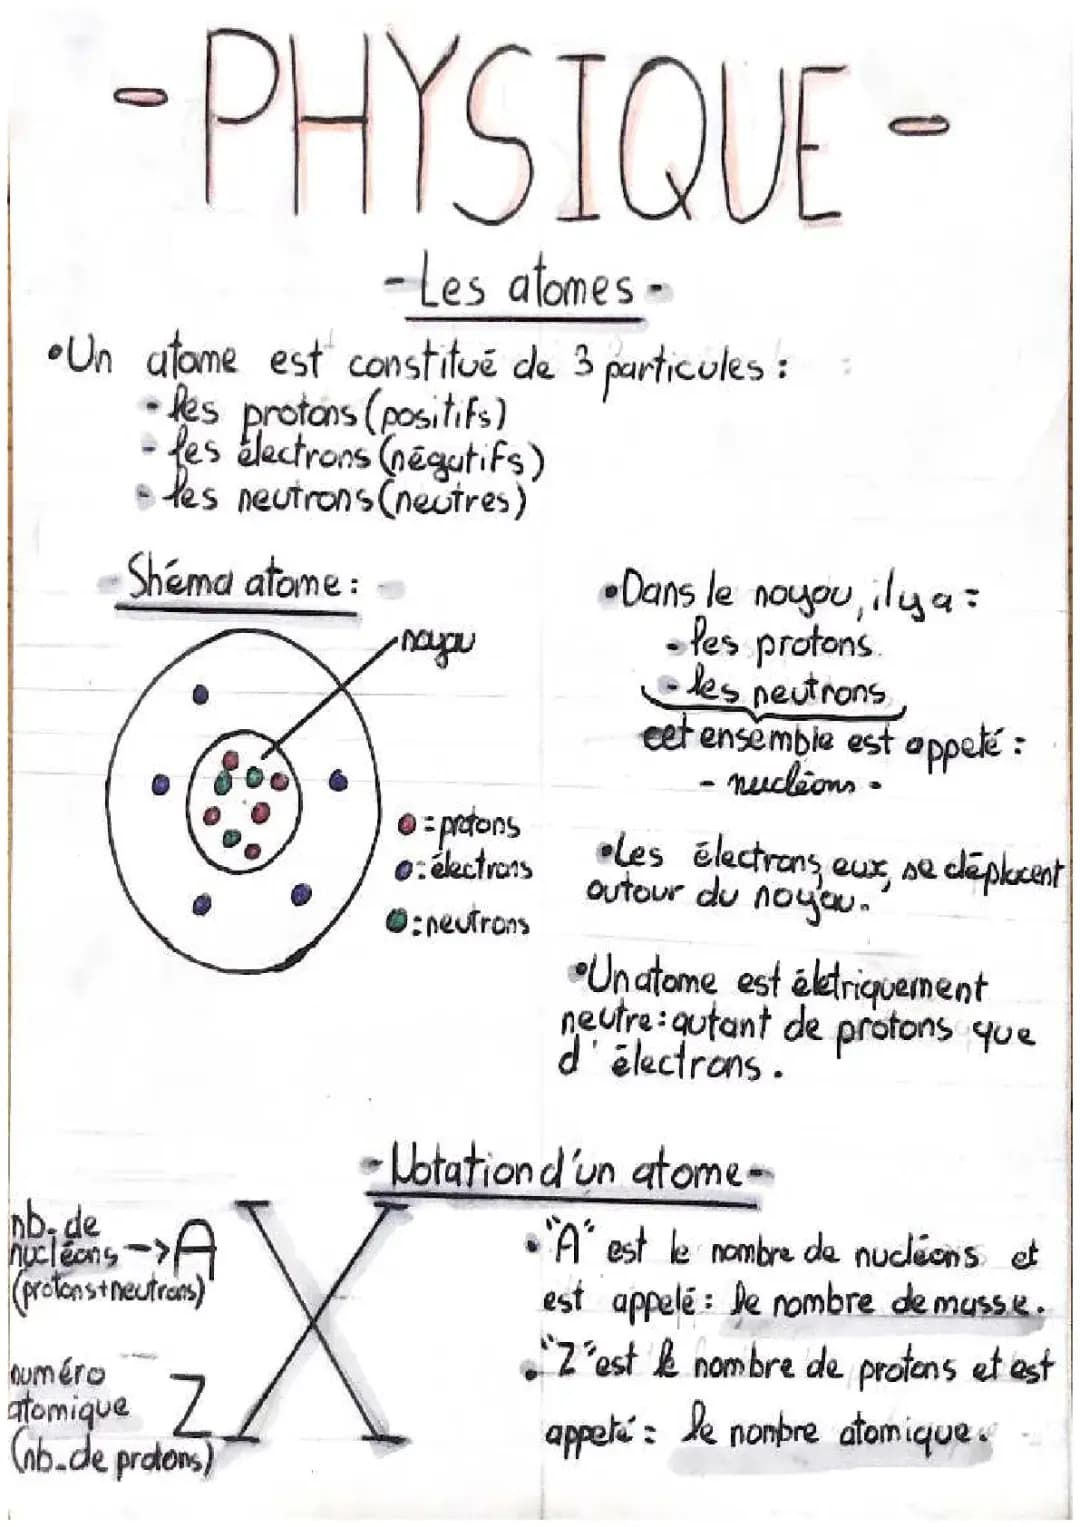 - PHYSIQUE -
- Les atomes -
• Un atome est constitué de 3 particules :
- les protons (positifs)
- les électrons (négatifs)
- les neutrons (neutres)
- Shéma atome : -
noyau
= protons
: électrons
: neutrons
• Dans le noyau, il y a :
- les protons.
- les neutrons
cet ensemble est appelé :
- nucléons -
• Les électrons, eux, se déplacent
autour du noyau.
• Un atome est élétriquement
neutre : autant de protons que
d'électrons.
- Notation d'un atome -
nb. de
nucléons -> A
(protons + neutrons)
X
numéro
atomique Z
(nb. de protons)
• "A" est le nombre de nucléons et
est appelé : le nombre de masse.
• "Z" est le nombre de protons et est
appelé : le nonbre atomique.